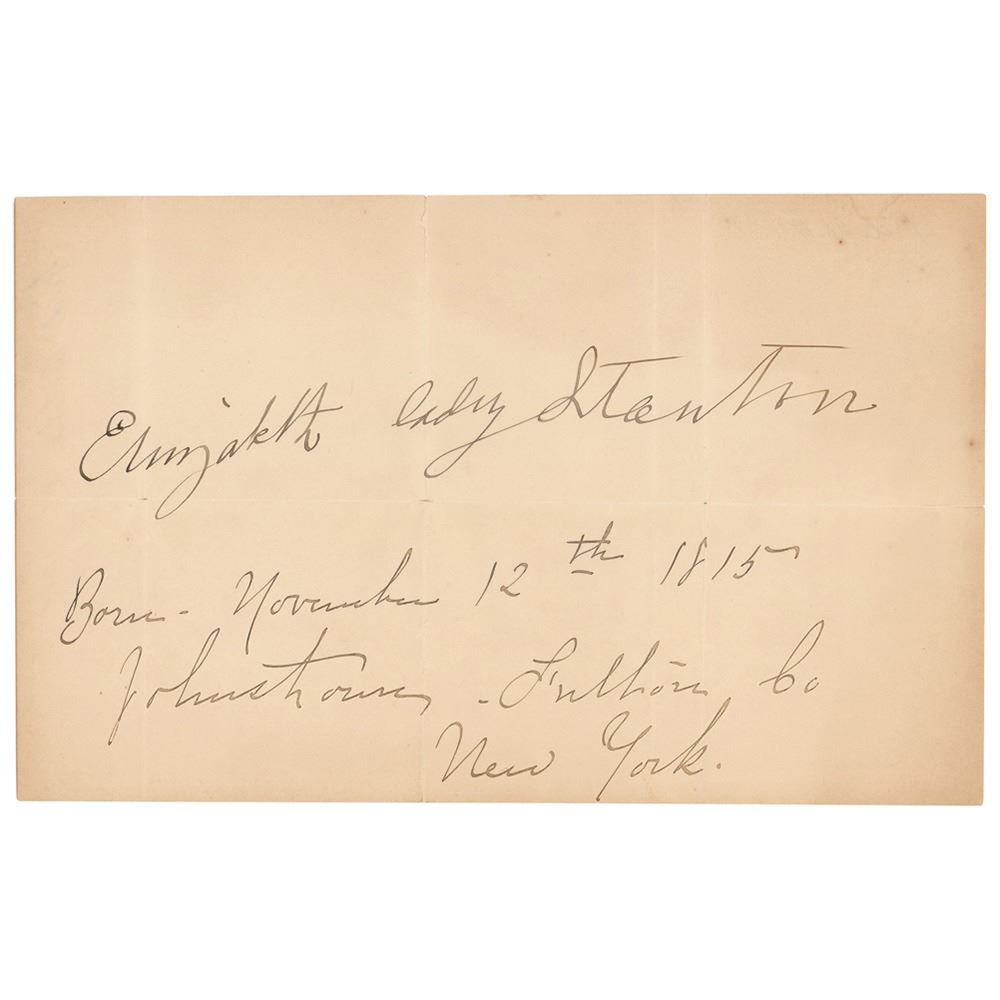 Elizabeth Cady Stanton
Born - November 12th 1815
Johnstown - Fulton Co
New York.